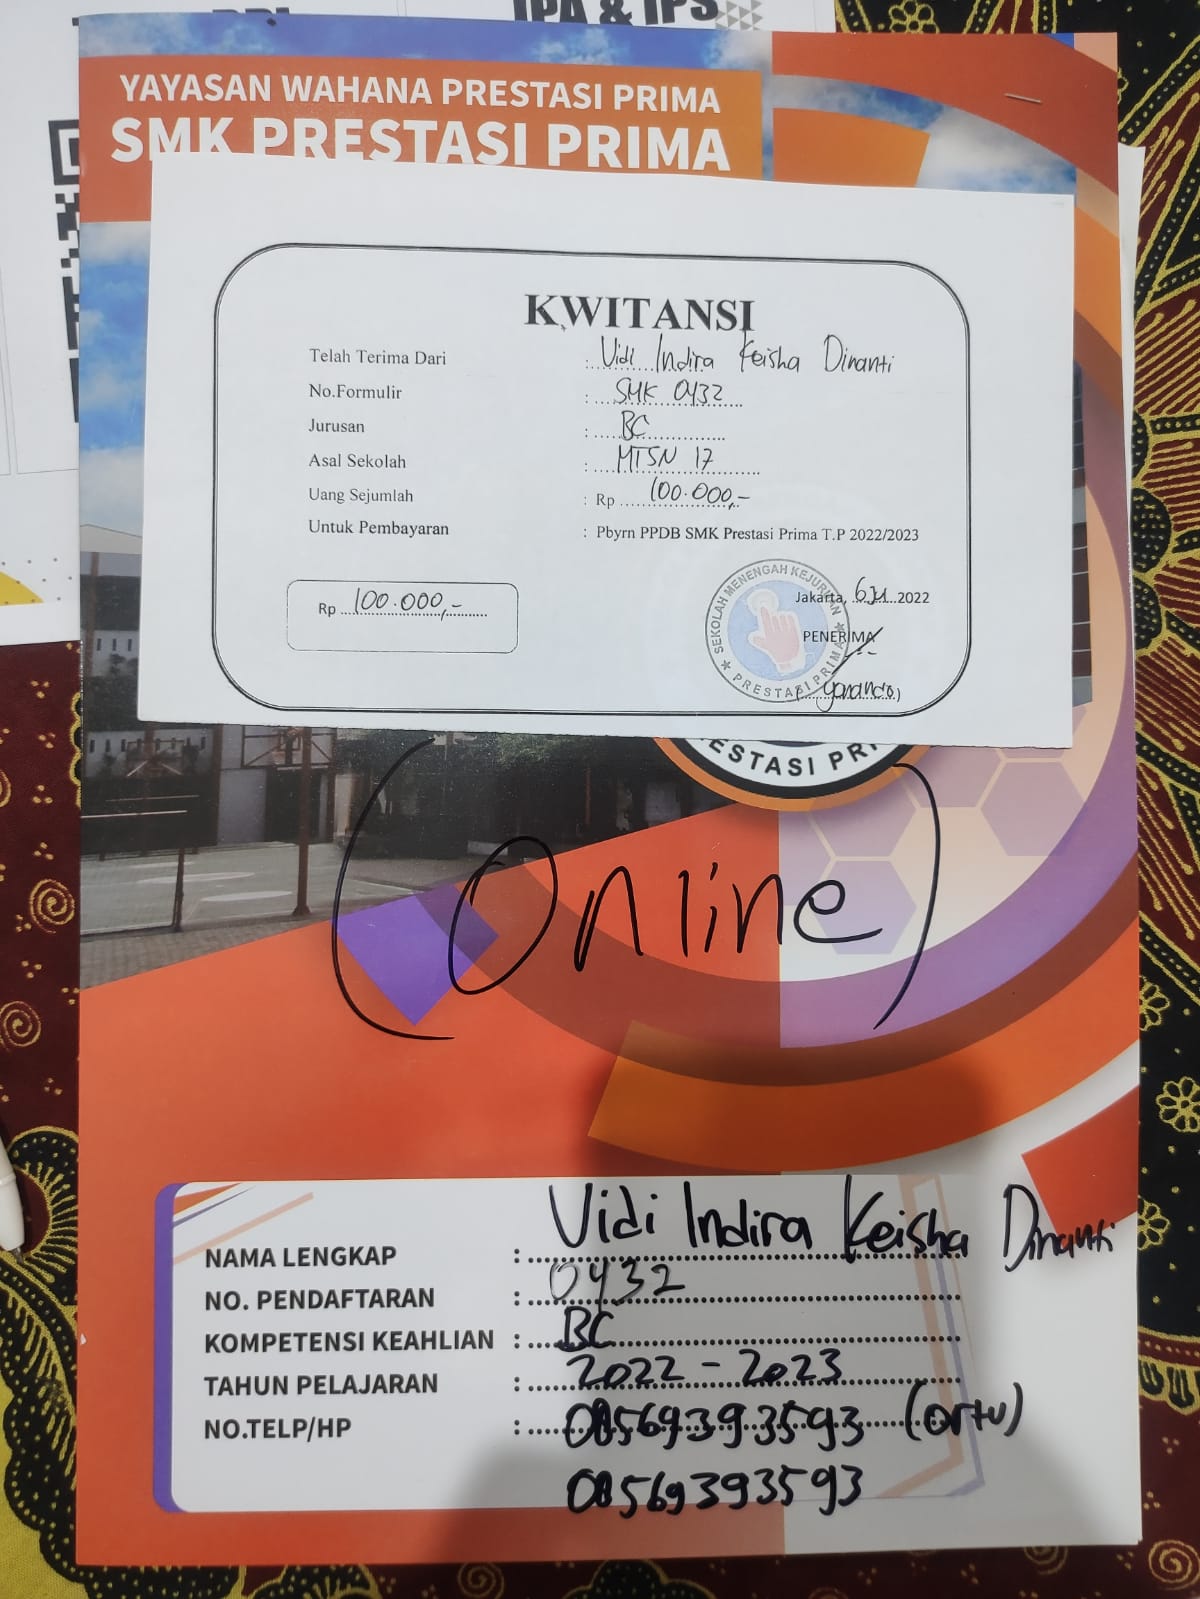 IPA & IPS
YAYASAN WAHANA PRESTASI PRIMA
SMK PRESTASI PRIMA
KWITANSI
Telah Terima Dari : Vidi Indira Keisha Dinanti
No.Formulir : SMK 0432
Jurusan : BC
Asal Sekolah : MTSN 17
Uang Sejumlah : Rp 100.000,-
Untuk Pembayaran : Pbyrn PPDB SMK Prestasi Prima T.P 2022/2023
Rp 100.000,-
SEKOLAH MENENGAH KEJURUAN
PRESTASI PRIMA
Jakarta, 2022
PENERIMA
ESTASI PRI
(Online)
NAMA LENGKAP : Vidi Indira Keisha Dinanti
NO. PENDAFTARAN : 0432
KOMPETENSI KEAHLIAN : BC
TAHUN PELAJARAN : 2022 - 2023
NO.TELP/HP : 08569393593 (ortu)
08569393593